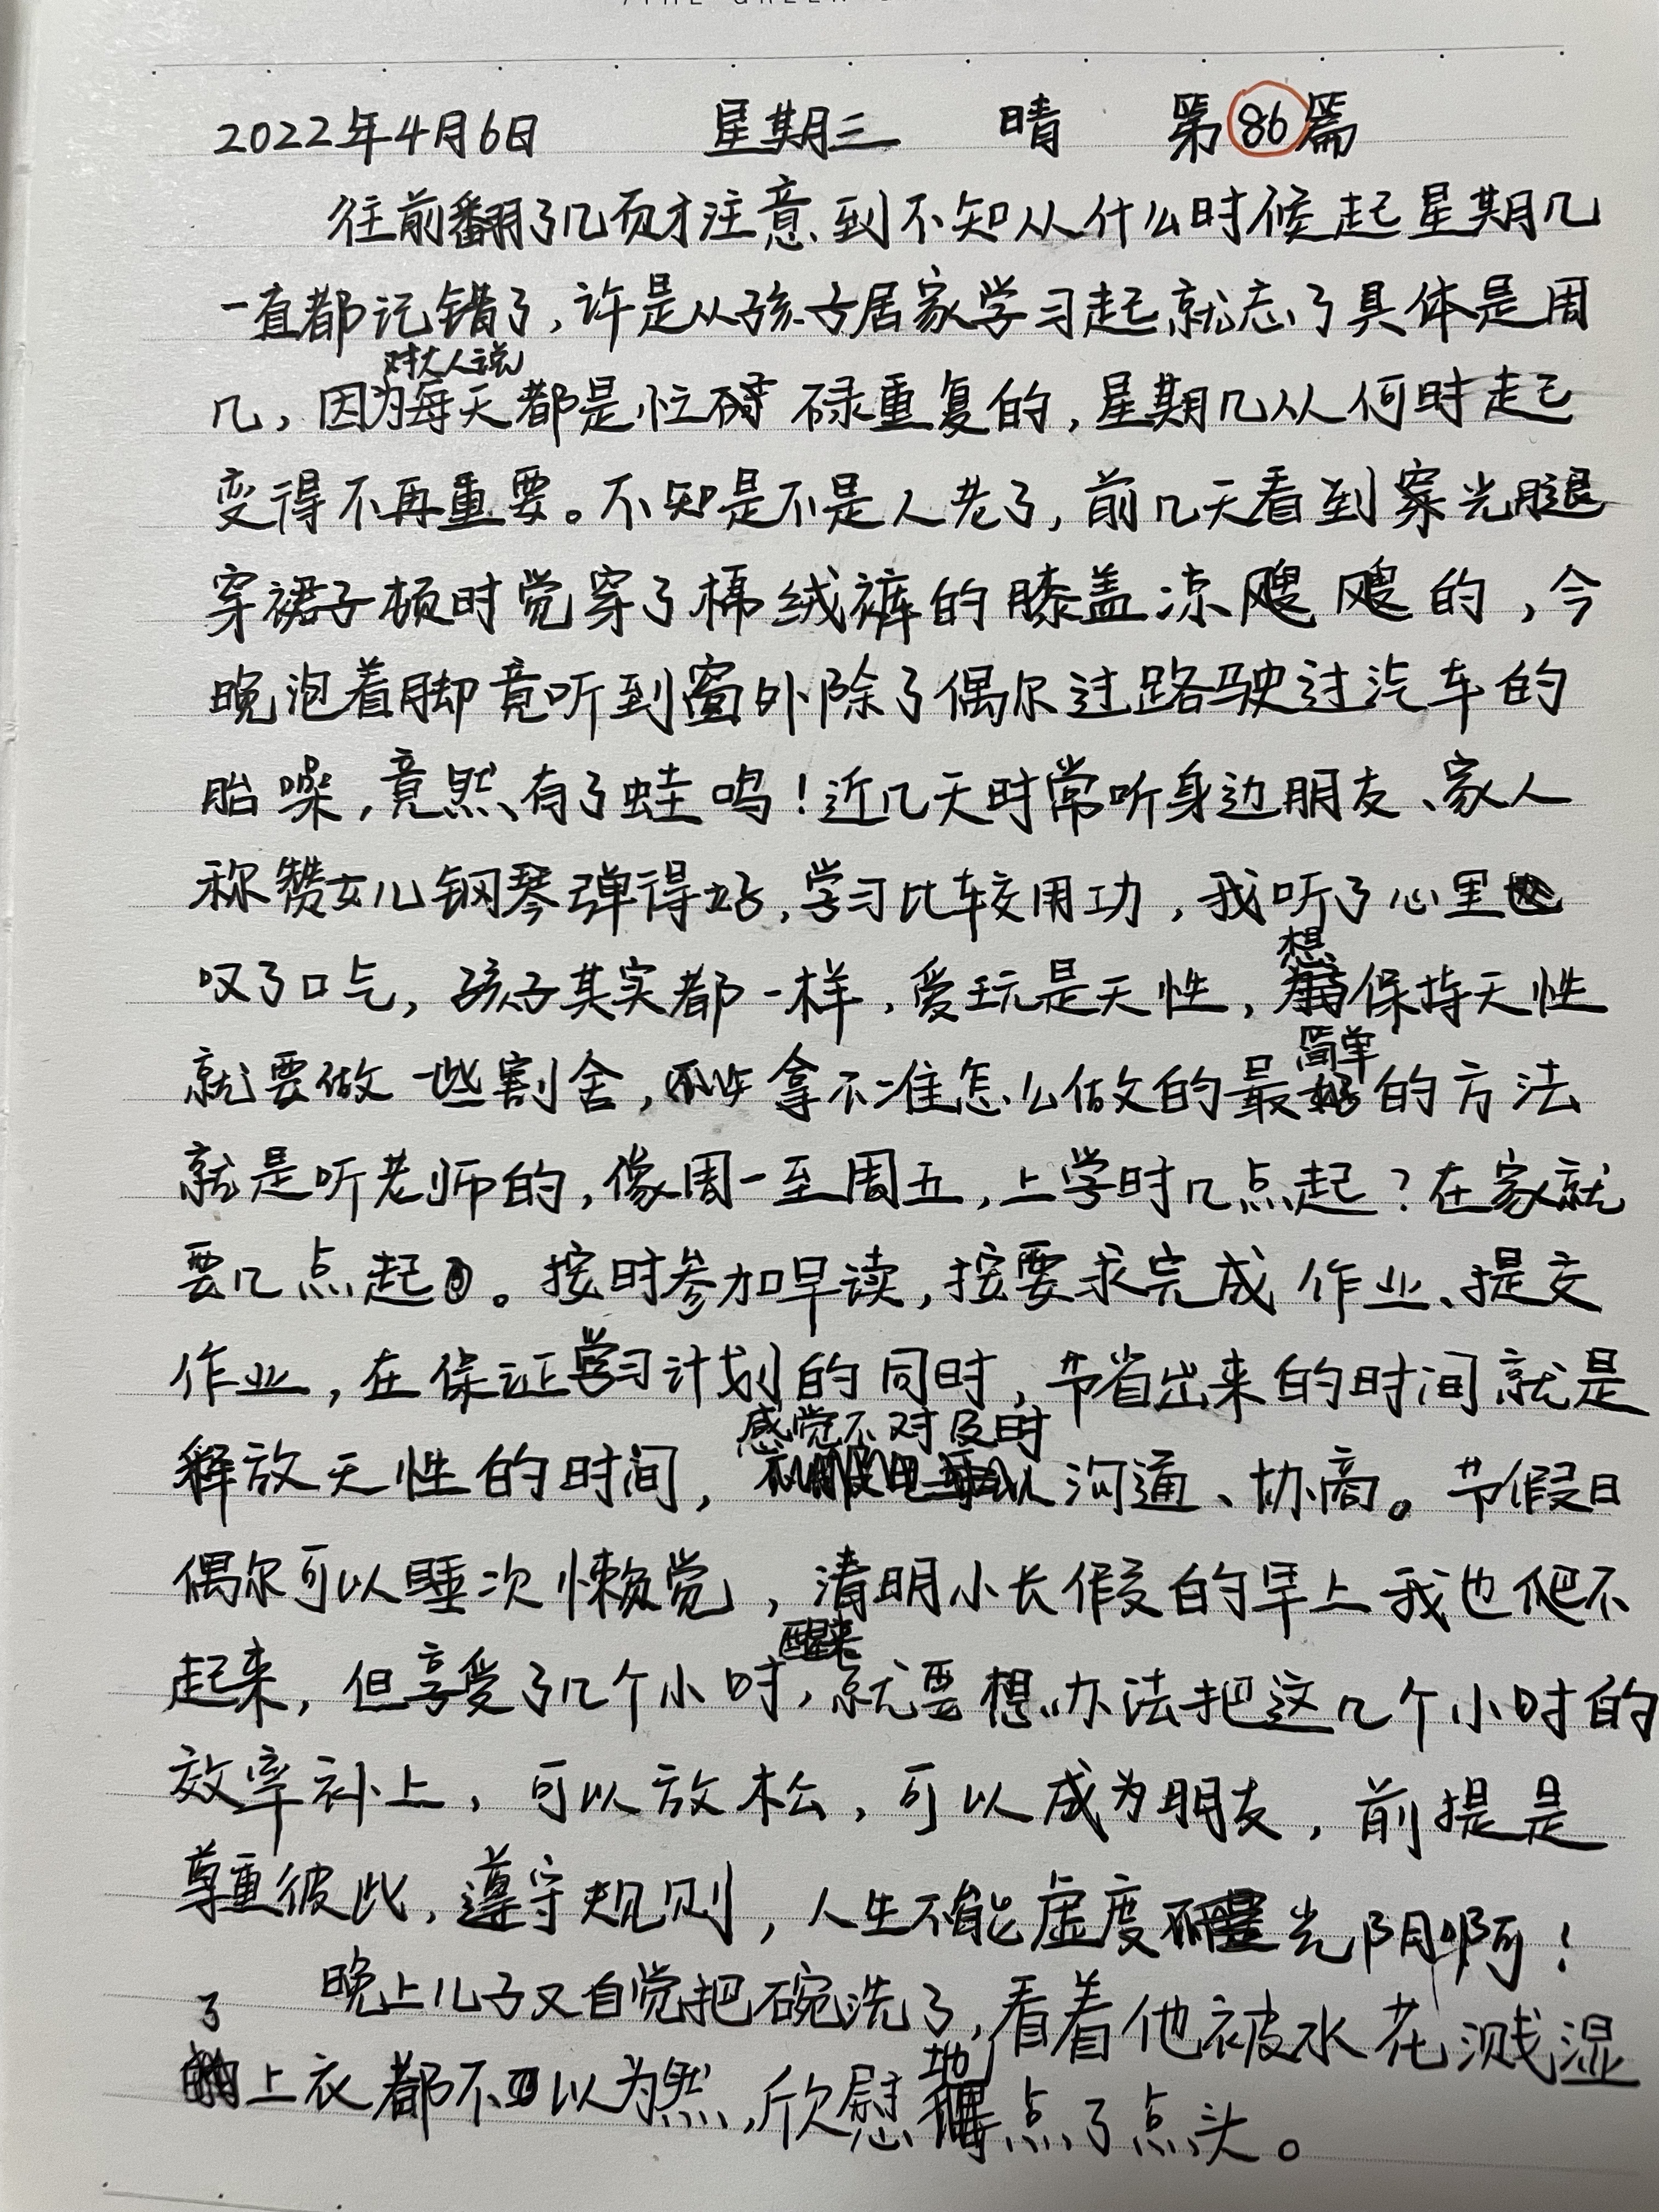 2022年4月6日 星期三 晴 第86篇
往前翻了几页才注意到不知从什么时候起星期几
一直都记错了,许是从孩子居家学习起就忘了具体是周
对大人说
几,因为每天都是忙碌重复的,星期几从何时起
变得不再重要。不知是不是人老了,前几天看到穿光腿
穿裙子顿时觉穿了棉绒裤的膝盖凉飕飕的,今
晚泡着脚竟听到窗外除了偶尔过路驶过汽车的
胎噪,竟然有了蛙鸣!近几天时常听身边朋友、家人
称赞女儿钢琴弹得好,学习比较用功,我听了心里
叹了口气,孩子其实都一样,爱玩是天性,想保持天性
就要做一些割舍,拿不准怎么做的最简单的方法
就是听老师的,像周一至周五,上学时几点起?在家就
要几点起。按时参加早读,按要求完成作业、提交
作业,在保证学习计划的同时,节省出来的时间就是
释放天性的时间,感觉不对及时沟通、协商。节假日
偶尔可以睡次懒觉,清明小长假的早上我也爬不
醒来
起来,但享受了几个小时,就要想办法把这几个小时的
效率补上,可以放松,可以成为朋友,前提是
尊重彼此,遵守规则,人生不能虚度光阴啊!
晚上儿子又自觉把碗洗了,看着他被水花溅湿
了上衣都不以为然,欣慰地点了点头。